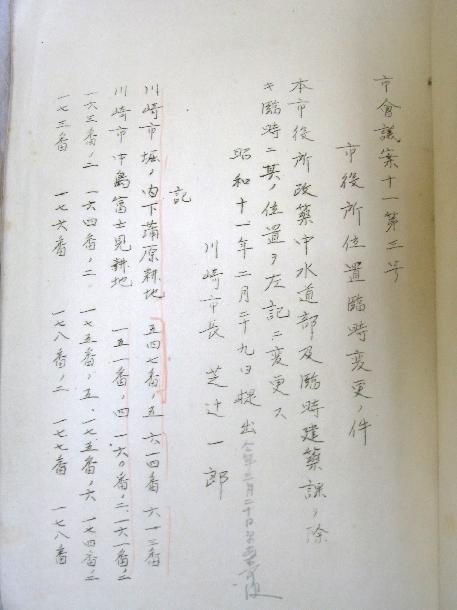 市會議案十一第三号
市役所位置臨時変更ノ件
本市役所改築中水道部及臨時建築課ヲ除
キ臨時ニ其ノ位置ヲ左記ニ変更ス
昭和十一年二月二十九日提出
川崎市長 芝辻一郎
記
川崎市堀ノ内下蒲原耕地 五四七番ノ五 六一四番 六一三番
川崎市中島富士見耕地 一五一番ノ四 一六〇番ノ二 一六一番ノ二
一六三番ノ二 一六四番ノ二 一七五番ノ五 一七五番ノ六 一七四番ノ二
一七三番 一七六番 一七八番ノ二 一七七番 一七八番